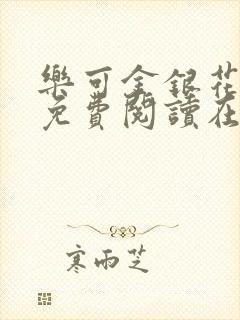 樂可金銀花
免費閱讀在
寒雨芝